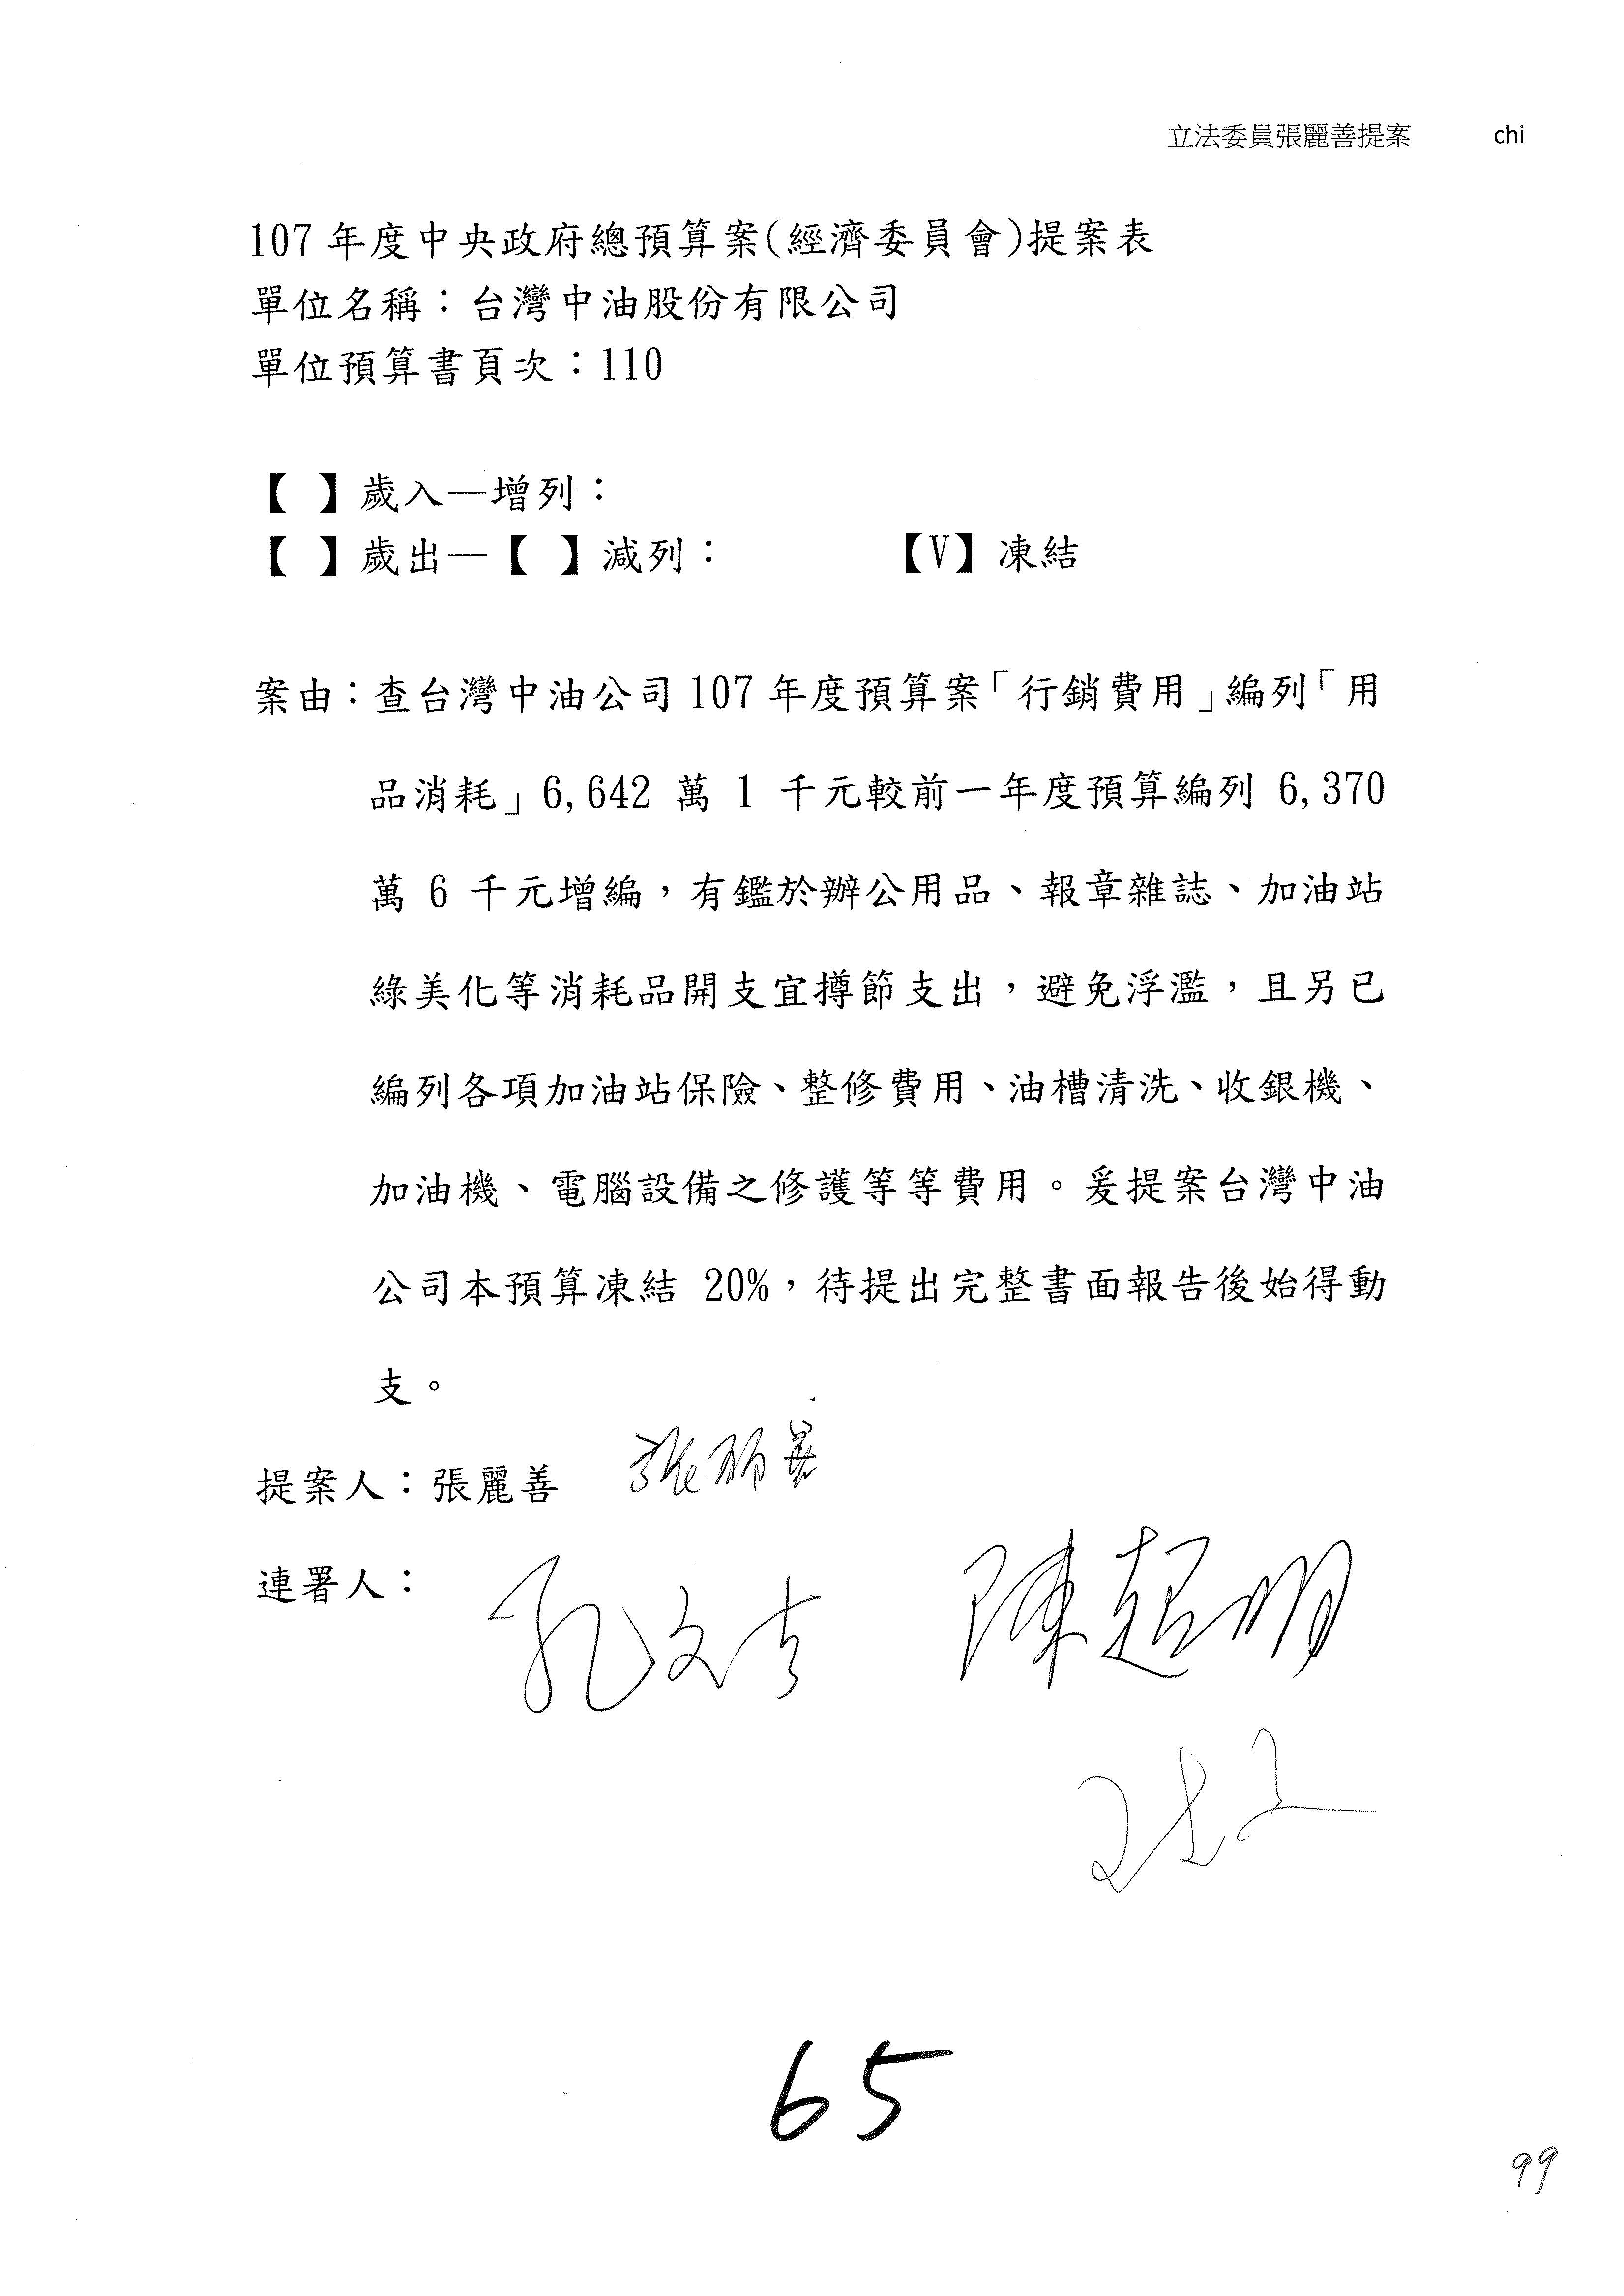 立法委員張麗善提案 chi
107 年度中央政府總預算案(經濟委員會)提案表
單位名稱：台灣中油股份有限公司
單位預算書頁次：110
【 】歲入—增列：
【 】歲出—【 】減列： 【V】凍結
案由：查台灣中油公司 107 年度預算案「行銷費用」編列「用
品消耗」6,642 萬 1 千元較前一年度預算編列 6,370
萬 6 千元增編，有鑑於辦公用品、報章雜誌、加油站
綠美化等消耗品開支宜撙節支出，避免浮濫，且另已
編列各項加油站保險、整修費用、油槽清洗、收銀機、
加油機、電腦設備之修護等等費用。爰提案台灣中油
公司本預算凍結 20%，待提出完整書面報告後始得動
支。
提案人：張麗善 張麗善
連署人： 孔文吉 陳超明
65
99